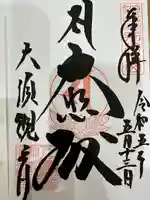 奉拝
令和五年
五月十三日
大悲殿
大須観音